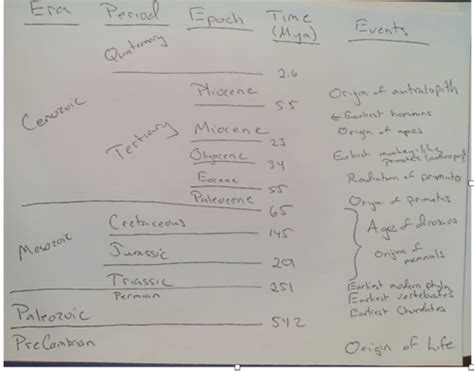 Era Period Epoch Time (Mya) Events
Quaternary
2.6
Pliocene Origin of australopith
5.5
← Earliest hominins
Cenozoic
Miocene Origin of apes
Tertiary
23
Oligocene Earliest monkey-like
34 primates
Eocene Radiation of primates
55
Paleocene Origin of primates
65
Cretaceous Age of dinosaurs
145
Mesozoic Jurassic Origin of mammals
201
Triassic Earliest modern phyla
251
Permian Earliest vertebrates
Paleozoic Earliest Chordates
542
PreCambrian Origin of Life